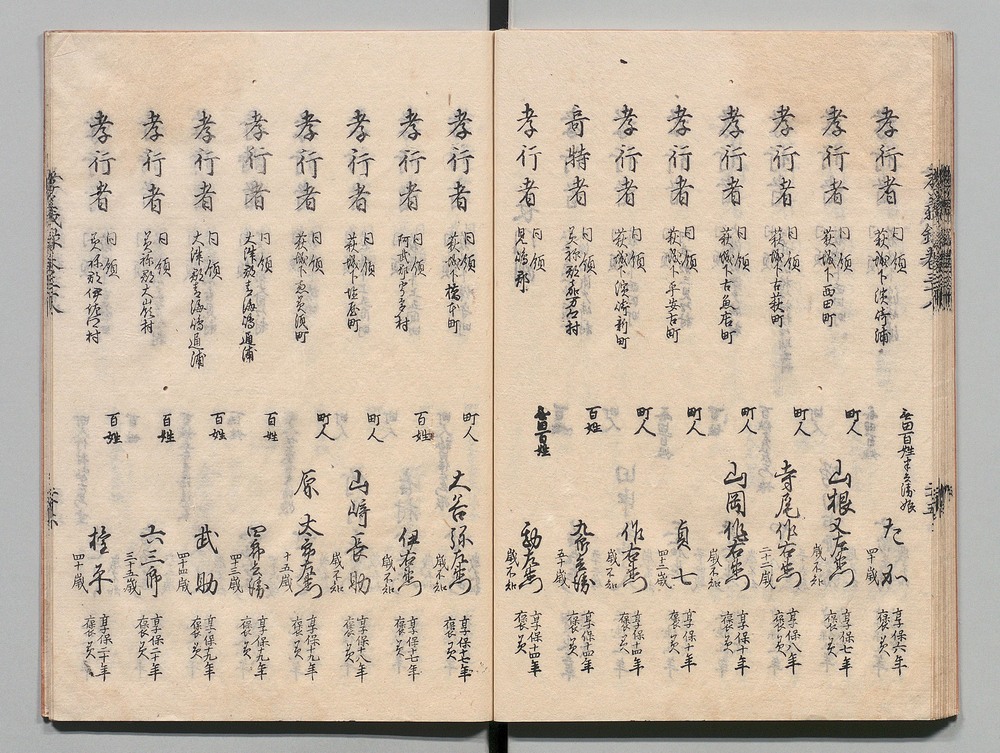 孝行者 同領 萩城下濱崎浦 無田百姓 た 四十歳 享保六年 褒美
孝行者 同領 萩城下西田町 町人 山根又左衛門 歳不知 享保七年 褒美
孝行者 同領 萩城下古萩町 町人 寺尾作右衛門 二十二歳 享保八年 褒美
孝行者 同領 萩城下古魚店町 町人 山岡 右衛門 歳不知 享保十年 褒美
孝行者 同領 萩城下平安古町 町人 貞七 四十二歳 享保十年 褒美
孝行者 同領 萩城下濱崎新町 町人 作右衛門 歳不知 享保十四年 褒美
奇特者 同領 美祢郡嘉万村 百姓 九郎兵衛 五十歳 享保十四年 褒美
孝行者 同領 児嶋郡 無田百姓 勘左衛門 歳不知 享保十四年 褒美
孝行者 同領 萩城下橋本町 町人 大谷弥左衛門 歳不知 享保十七年 褒美
孝行者 同領 阿武郡 村 百姓 伊右衛門 歳不知 享保十七年 褒美
孝行者 同領 萩城下塩屋町 町人 山崎長助 歳不知 享保十八年 褒美
孝行者 同領 萩城下 町 町人 原太郎左衛門 十五歳 享保十九年 褒美
孝行者 同領 大津郡青海嶋通浦 百姓 四郎兵衛 四十三歳 享保十九年 褒美
孝行者 同領 大津郡青海嶋通浦 百姓 武助 四十四歳 享保十九年 褒美
孝行者 同領 美祢郡大嶺村 百姓 六三郎 三十五歳 享保二十年 褒美
孝行者 同領 美祢郡伊佐村 百姓 四十歳 享保二十年 褒美